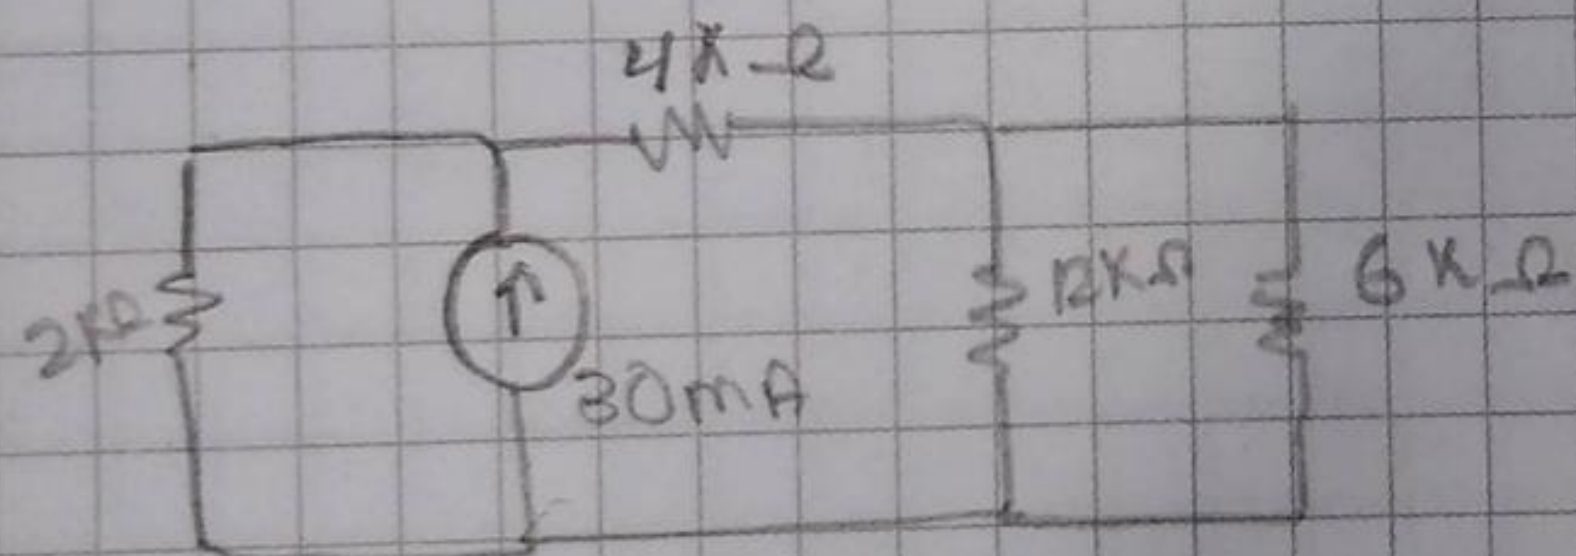 4KΩ
2KΩ
30mA
12KΩ
6KΩ